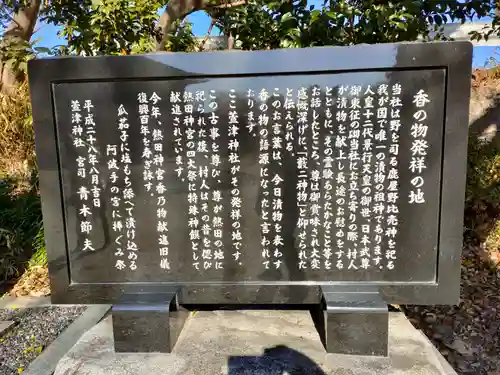 香の物発祥の地
当社は野を司る鹿屋野比売神を祀る
我が国で唯一の漬物の祖神であります。
人皇十二代景行天皇の御世、日本武尊
御東征の砌当社に立ち寄りの際、村人
が漬物を献上し長途のお慰めをする
とともに、その霊験あらたかなこと等を
お話したところ、尊は御賞味され大変
感慨深げに、「藪二神物」と仰せられた
と伝えられる。
このお言葉は、今日漬物を表わす
香の物の語源になったと言われて
おります。
ここ萱津神社がその発祥の地です。
この古事を尊び、尊が熱田の地に
祀られた後、村人はその昔を偲び
熱田神宮の四大祭に特殊神饌として
献進されています。
今年、熱田神宮香乃物献進旧儀
復興百年を寿ぎ詠す。
瓜茄子に塩もち添へて漬け込める
阿波手の宮に拝ぐみ祭
平成二十八年八月吉日
萱津神社 宮司 青木節夫